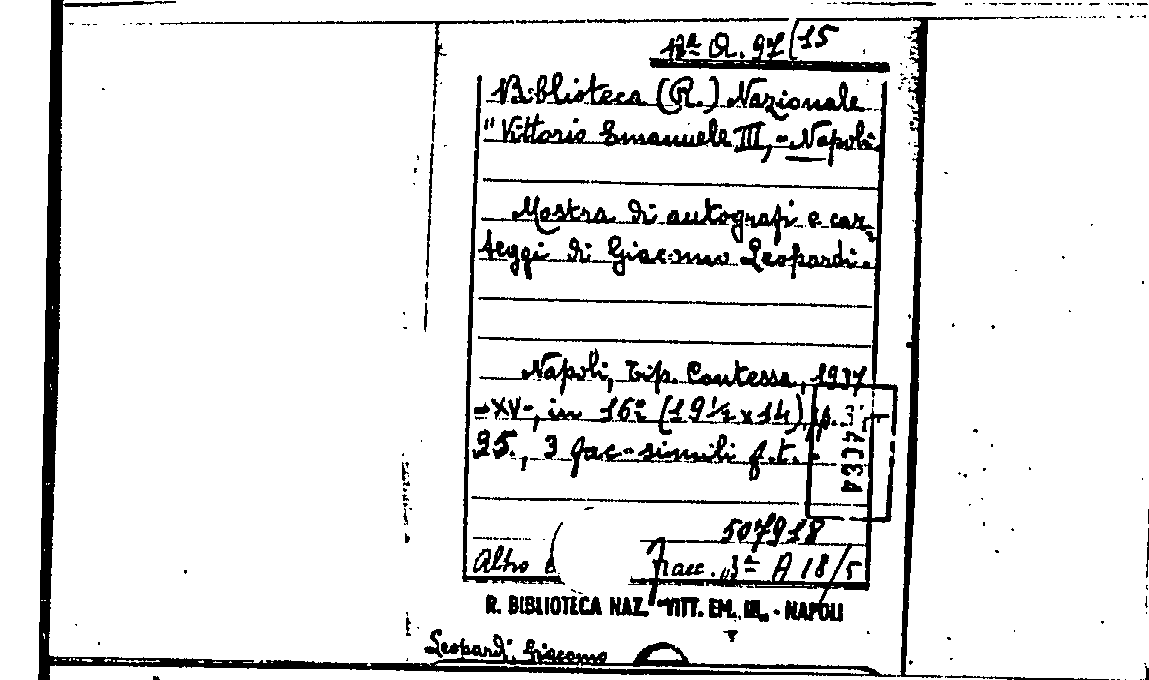 12ª Q. 97(15
Biblioteca (R.) Nazionale
"Vittorio Emanuele III, - Napoli.
Mostra di autografi e car-
teggi di Giacomo Leopardi. -
Napoli, Tip. Contessa, 1937
-XV-, in 16º (19½ x 14), p.
25, 3 fac-simili f.t. -
507918
Altro Race. 3ª A 18/5
R. BIBLIOTECA NAZ. "VITT. EM. III„ - NAPOLI
Leopardi, Giacomo